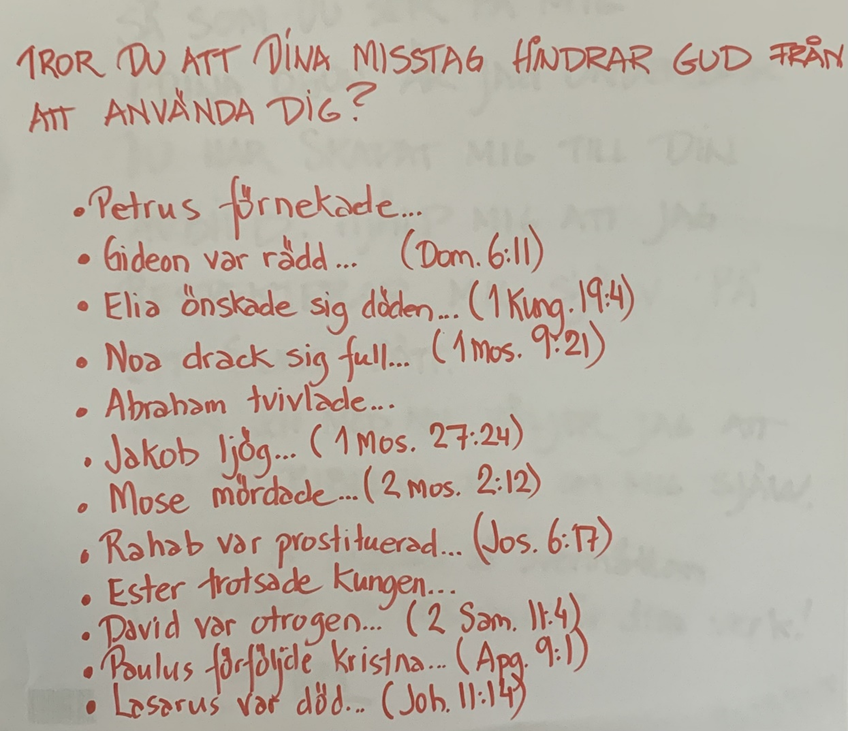 TROR DU ATT DINA MISSTAG HINDRAR GUD FRÅN
ATT ANVÄNDA DIG?
• Petrus förnekade...
• Gideon var rädd... (Dom. 6:11)
• Elia önskade sig döden... (1 Kung. 19:4)
• Noa drack sig full... (1 Mos. 9:21)
• Abraham tvivlade...
• Jakob ljög... (1 Mos. 27:24)
• Mose mördade... (2 Mos. 2:12)
• Rahab var prostituerad... (Jos. 6:17)
• Ester trotsade Kungen...
• David var otrogen... (2 Sam. 11:4)
• Paulus förföljde kristna... (Apg. 9:1)
• Lasarus var död... (Joh. 11:14)